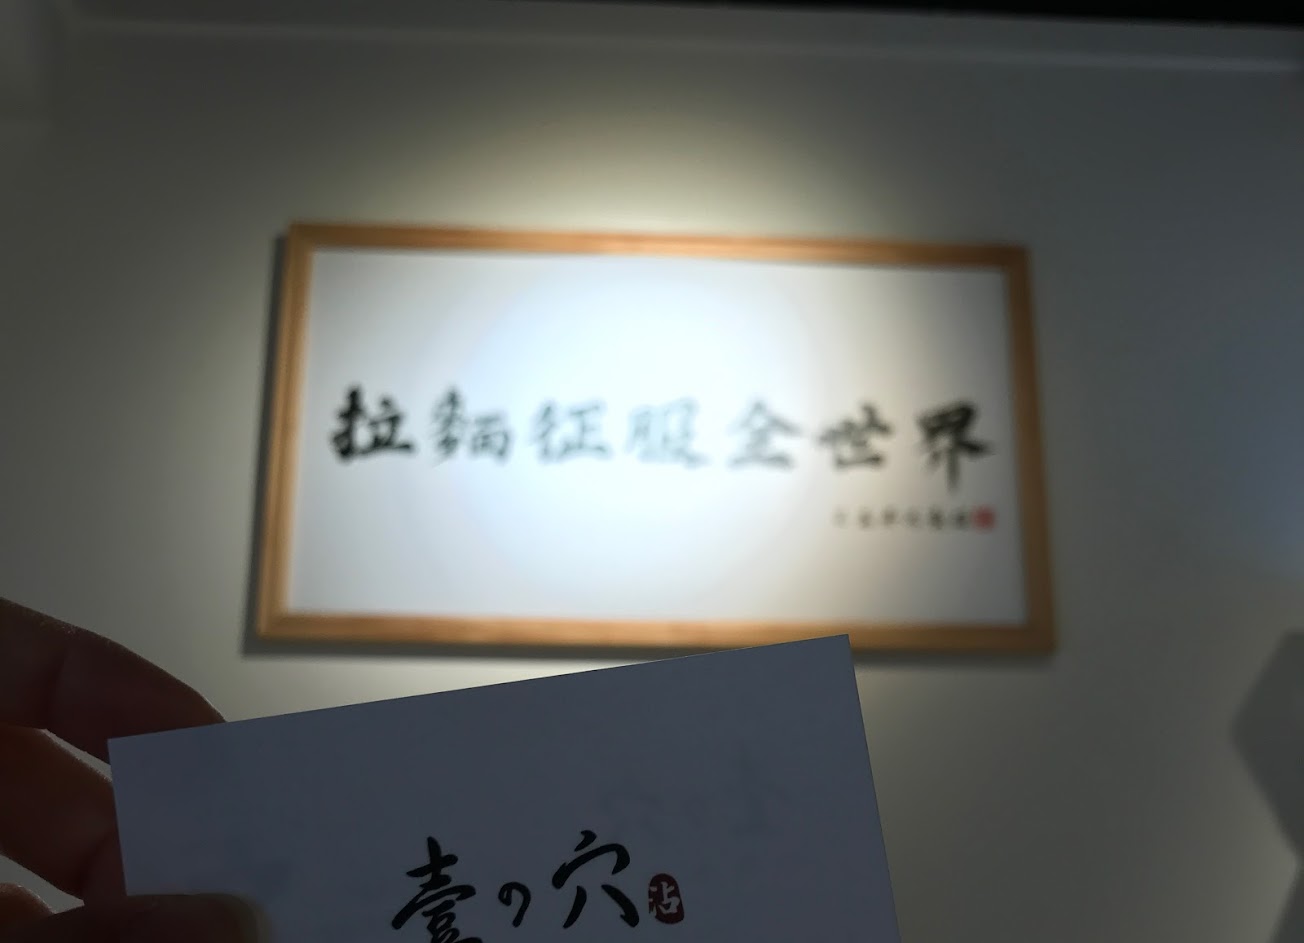 拉麵征服全世界
壹の穴 沾